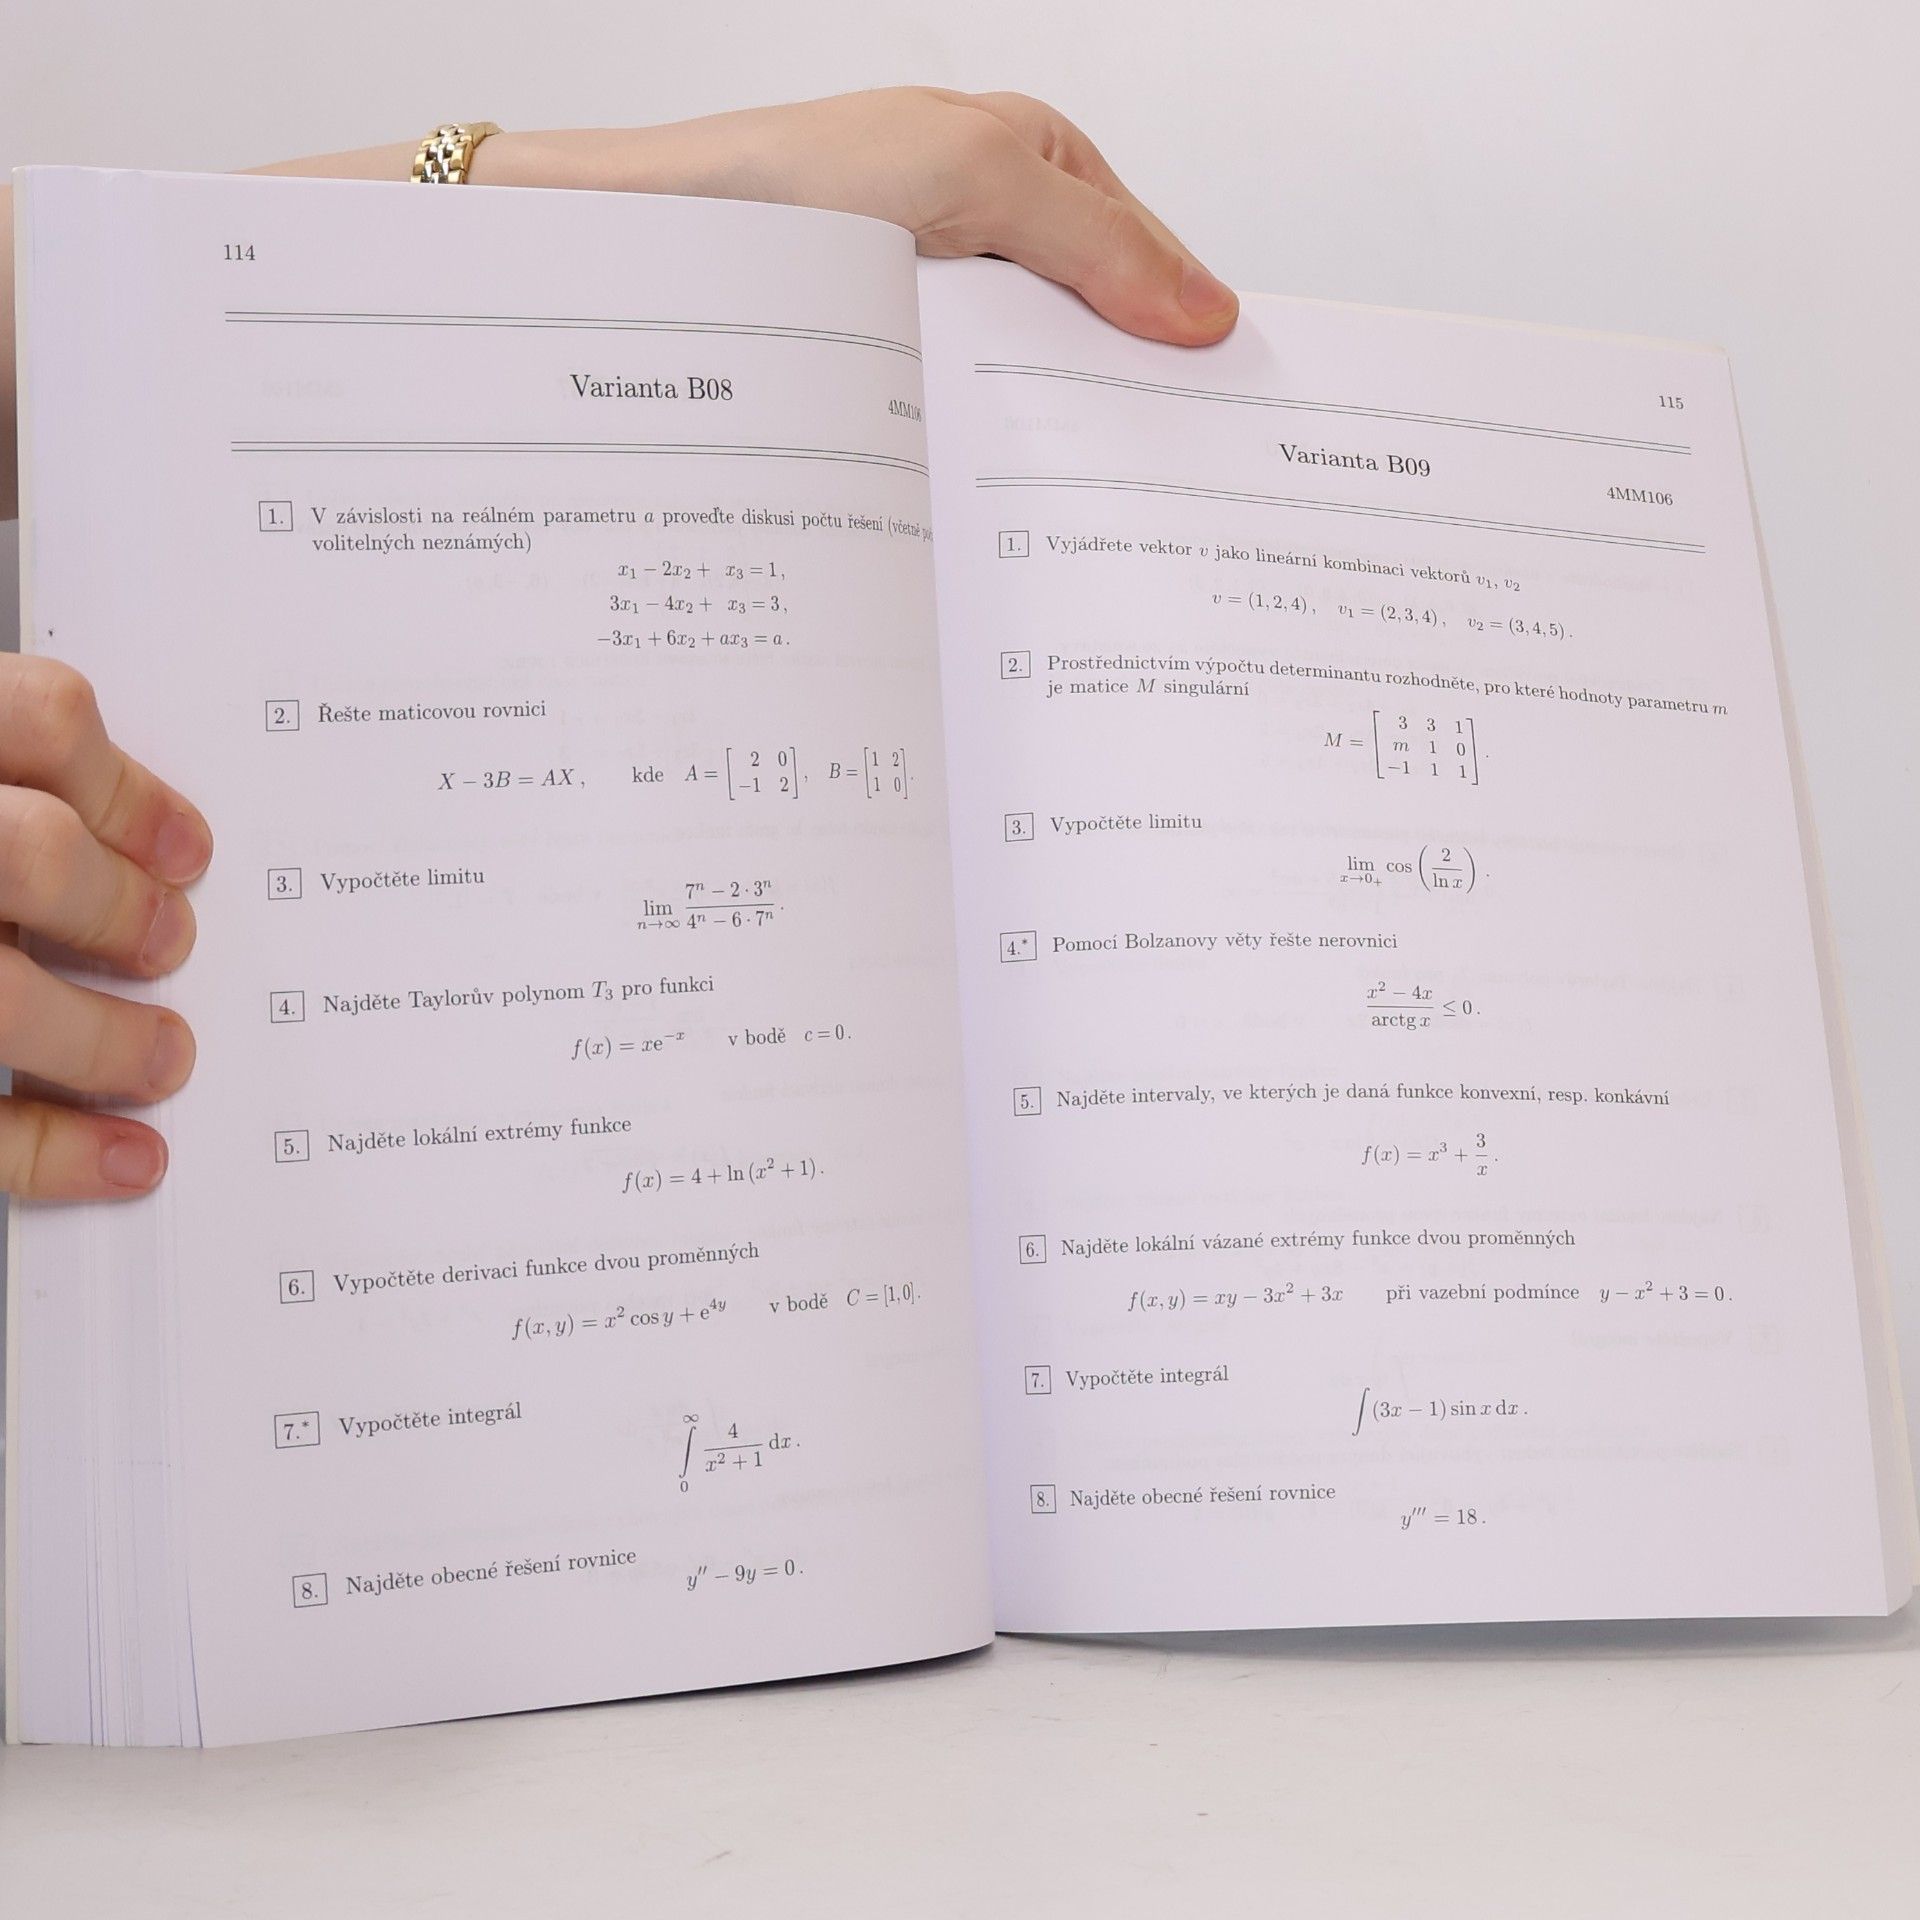 114
Varianta B08
4MM106
1. V závislosti na reálném parametru a proveďte diskusi počtu řešení (včetně
volitelných neznámých)
x₁ − 2x₂ + x₃ = 1,
3x₁ − 4x₂ + x₃ = 3,
−3x₁ + 6x₂ + ax₃ = a.
2. Řešte maticovou rovnici
X − 3B = AX, kde A = [2 0; −1 2], B = [1 2; 1 0].
3. Vypočtěte limitu
lim n→∞ (7ⁿ − 2 · 3ⁿ)/(4ⁿ − 6 · 7ⁿ).
4. Najděte Taylorův polynom T₃ pro funkci
f(x) = xe⁻ˣ v bodě c = 0.
5. Najděte lokální extrémy funkce
f(x) = 4 + ln (x² + 1).
6. Vypočtěte derivaci funkce dvou proměnných
f(x, y) = x² cos y + e⁴ʸ v bodě C = [1,0].
7.* Vypočtěte integrál
∫₀^∞ 4/(x² + 1) dx.
8. Najděte obecné řešení rovnice
y″ − 9y = 0.
115
Varianta B09
4MM106
1. Vyjádřete vektor v jako lineární kombinaci vektorů v₁, v₂
v = (1, 2, 4), v₁ = (2, 3, 4), v₂ = (3, 4, 5).
2. Prostřednictvím výpočtu determinantu rozhodněte, pro které hodnoty parametru m
je matice M singulární
M = [3 3 1; m 1 0; −1 1 1].
3. Vypočtěte limitu
lim x→0₊ cos (2/ln x).
4.* Pomocí Bolzanovy věty řešte nerovnici
(x² − 4x)/arctg x ≤ 0.
5. Najděte intervaly, ve kterých je daná funkce konvexní, resp. konkávní
f(x) = x³ + 3/x.
6. Najděte lokální vázané extrémy funkce dvou proměnných
f(x, y) = xy − 3x² + 3x při vazební podmínce y − x² + 3 = 0.
7. Vypočtěte integrál
∫(3x − 1) sin x dx.
8. Najděte obecné řešení rovnice
y‴ = 18.